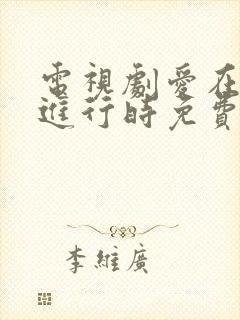 電視劇愛在
進行時免費
李維廣